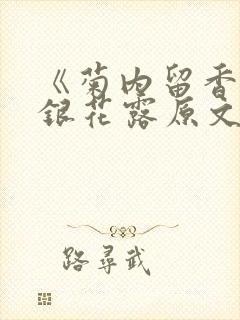 《菊内留香
银花露原文
路尋武